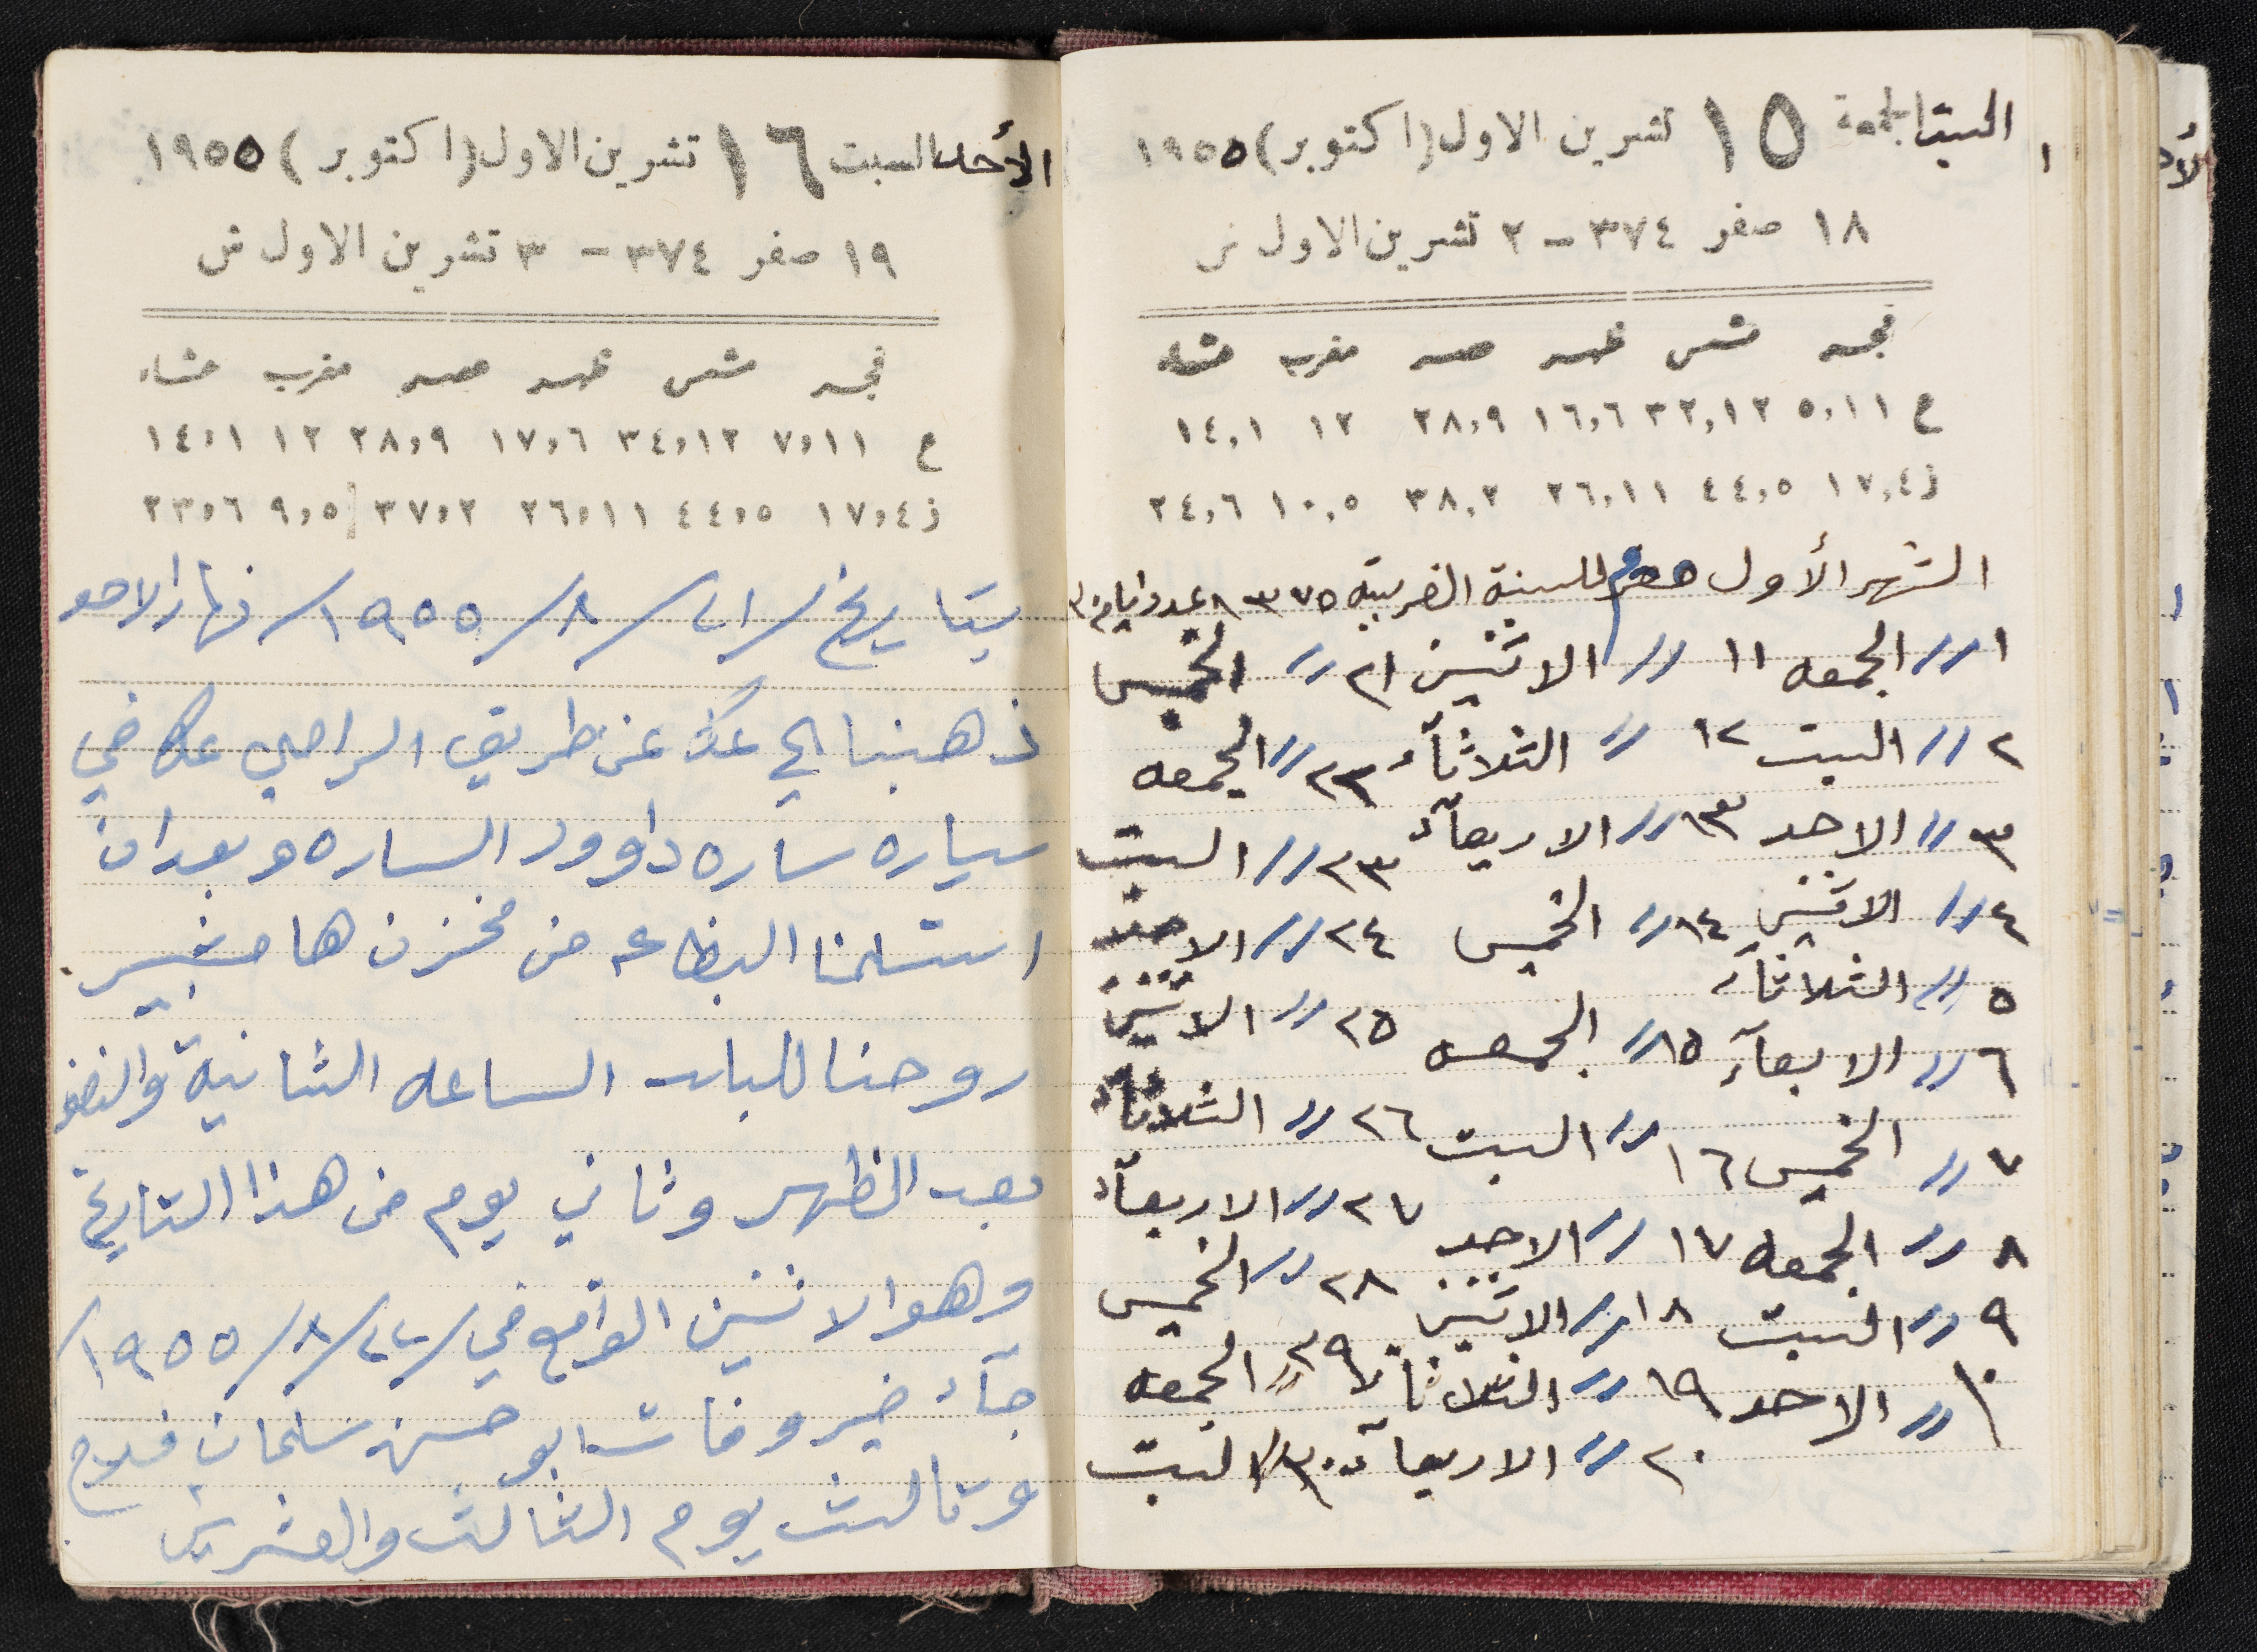 السبت الجمعة ١٥ تشرين الاول (اكتوبر) ١٩٥٥
١٨ صفر ٣٧٤ - ٢ تشرين الاول ش
فجر شمس ظهر عصر مغرب عشاء
ع ٥،١١ ٣٢،١٢ ١٦،٦ ٢٨،٩ ١٢ ١٤،١
ز ١٧،٤ ٤٤،٥ ٢٦،١١ ٣٨،٢ ١٠،٥ ٢٤،٦
الشهر الأول محرم للسنة ١٣٧٥ عدد ايام ٣٠
١ // الجمعه ١١ // الاثنين ٢١ // الخميس
٢ // السبت ١٢ // الثلاثآء ٢٢ // الجمعه
٣ // الاحد ١٣ // الاربعآء ٢٣ // السبت
٤ // الاثنين ١٤ // الخميس ٢٤ // الاحد
٥ // الثلاثآء ١٥ // الجمعه ٢٥ // الاثنين
٦ // الابعآء ١٦ // السبت ٢٦ // الثلاثآء
٧ // الخميس ١٧ // الاحد ٢٧ // الاربعآء
٨ // الجمعه ١٨ // الاثنين ٢٨ // الخميس
٩ // السبت ١٩ // الثلاثآء ٢٩ // الجمعه
١٠ // الاحد ٢٠ // الاربعآء ٣٠ // السبت
الأحد السبت ١٦ تشرين الاول (اكتوبر) ١٩٥٥
١٩ صفر ٣٧٤ - ٣ تشرين الاول ش
فجر شمس ظهر عصر مغرب عشاء
ع ٧،١١ ٣٤،١٢ ١٧،٦ ٢٨،٩ ١٢ ١٤،١
ز ١٧،٤ ٤٤،٥ ٢٦،١١ ٣٧،٢ ٩،٥ ٢٣،٦
بتاريخ / ٢١ / ٨ / ١٩٥٥ / نهار الاحد
ذهبنا الى عكا عن طريق الرامي عكا في
سياره ساره داوود الساره وبعد ان
استلمنا البظاعه من مخزن هامشبير.
روحنا للبلد الساعه الثانية والنصف
بعد الظهر وثاني يوم من هذا التاريخ
وهو الاثنين الواقع في / ٢٢ / ٨ / ١٩٥٥ /
جآء خبر وفات ابو حسن سلمان فلاح
وثالث يوم الثالث والعشرين